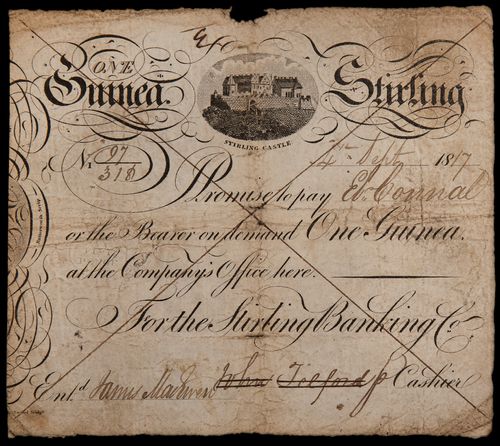 ONE
Guinea. Stirling
STIRLING CASTLE
No 97/318 4th Sept 1817
Promise to pay Eb Connal
or the Bearer on demand One Guinea.
at the Company's Office here.
For the Stirling Banking Co.
Entd. James MacEwen John Telford Cashier